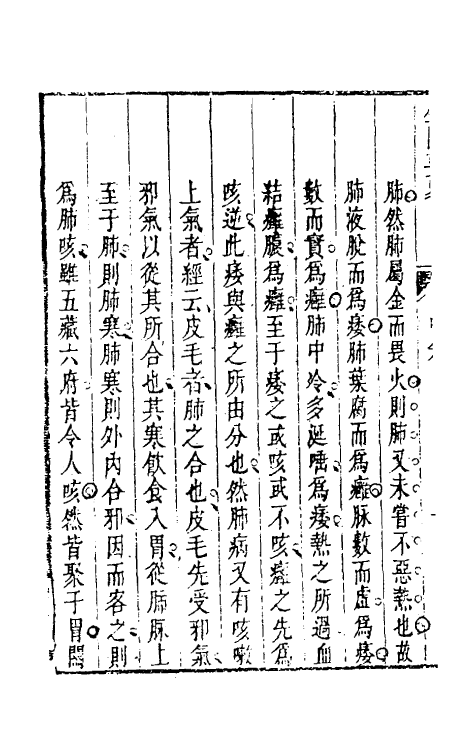 肺然肺屬金而畏火則肺又未嘗不惡熱也故
肺液脫而為痿肺葉腐而為癰脈數而虛為痿
數而實為癰肺中冷多涎唾為痿熱之所過血
結癰膿為癰至于痿之或咳或不咳癰之先為
咳逆此痿與癰之所由分也然肺病又有咳嗽
上氣者經云皮毛者肺之合也皮毛先受邪氣
邪氣以從其所合也其寒飲食入胃從肺脈上
至于肺則肺寒肺寒則外內合邪因而客之則
為肺咳雖五藏六府皆令人咳然皆聚于胃關